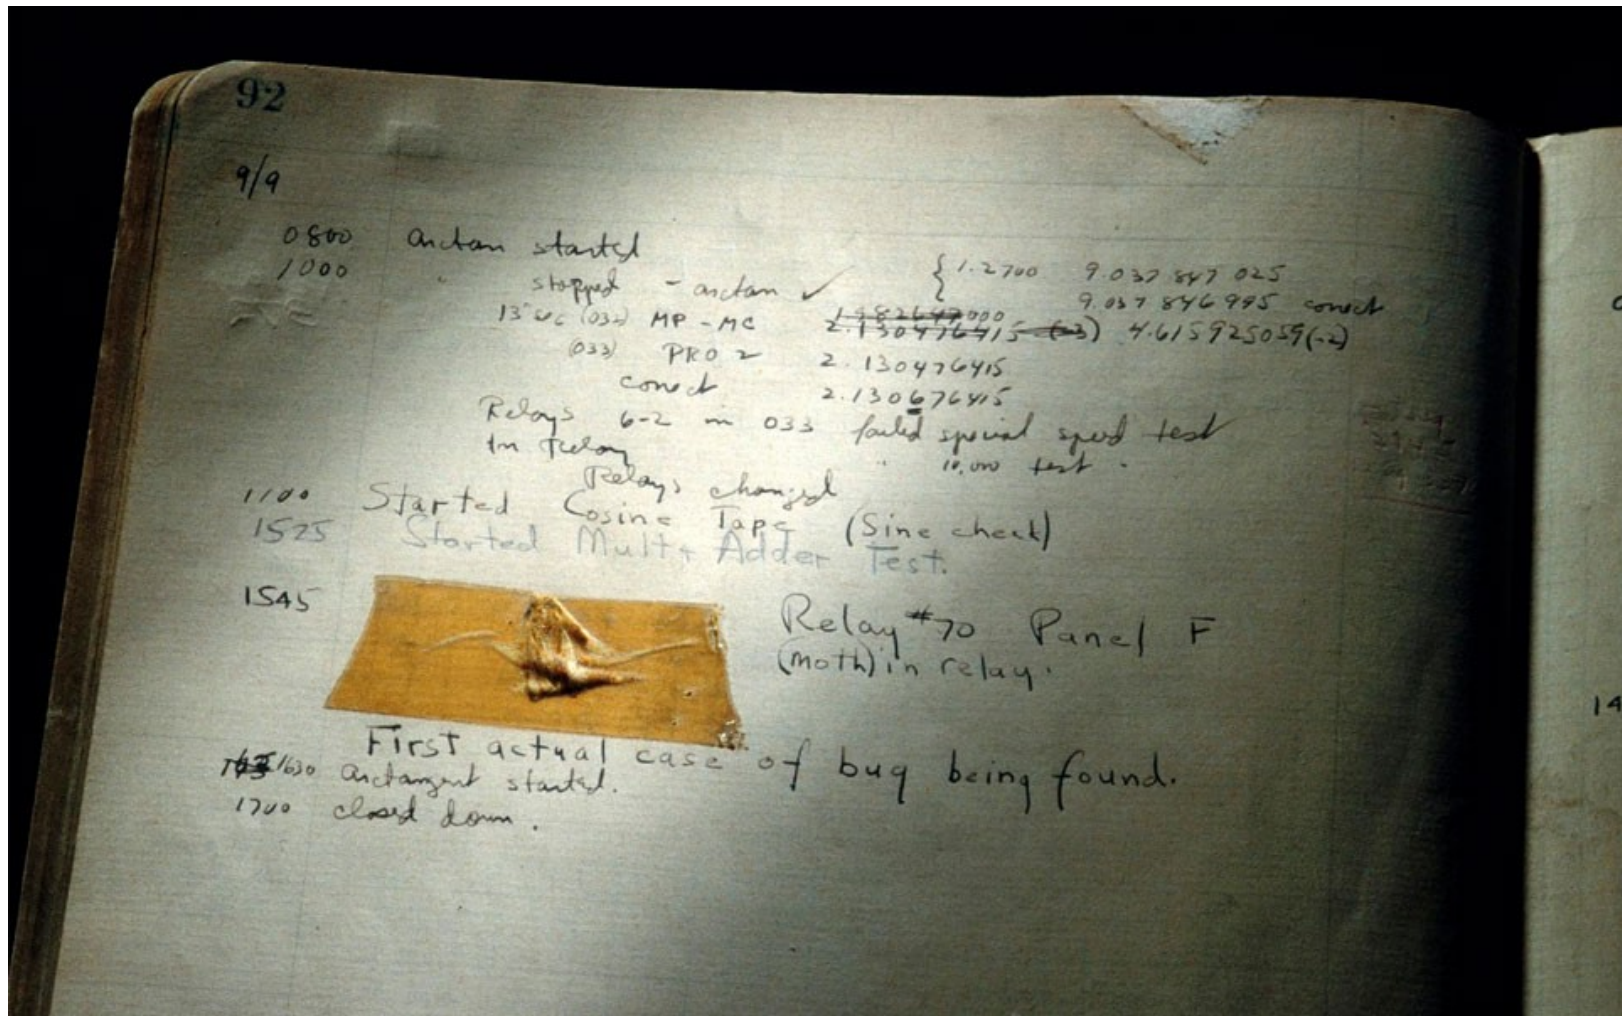 92
9/9
0800 arctan started
1000 " stopped - arctan ✓ { 1.2700 9.037 847 025
9.037 846 995 conect
13"uc (032) MP - MC 2.130476415 (-3) 4.615925059(-2)
(033) PRO 2 2.130476415
conect 2.130676415
Relays 6-2 in 033 failed special speed test
In Relay " 10,000 test .
Relays changed
1100 Started Cosine Tape (Sine check)
1525 Started Mult + Adder Test.
1545 Relay #70 Panel F
(moth) in relay.
First actual case of bug being found.
1630 arctangent started.
1700 closed down .
14